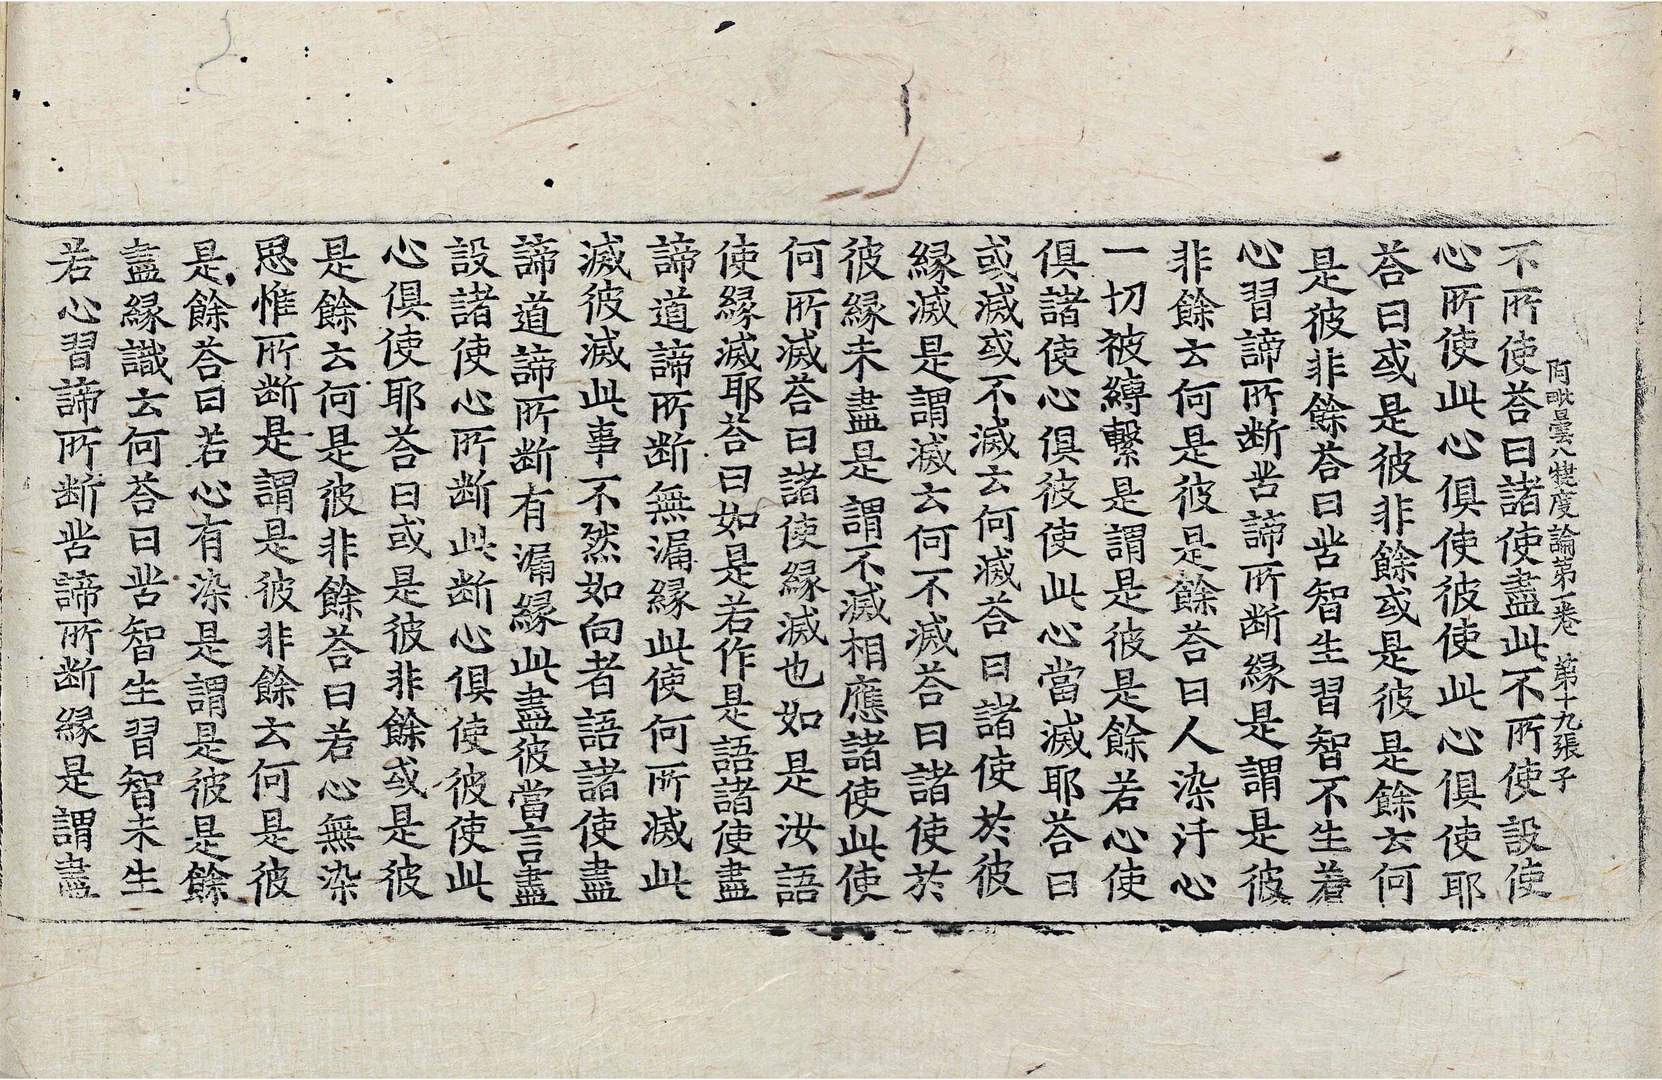 阿毗曇八犍度論第一卷 第十九張 子
不所使荅曰諸使盡此不所使設使
心所使此心俱使彼使此心俱使耶
荅曰或是彼非餘或是彼是餘云何
是彼非餘荅曰苦智生習智不生若
心習諦所断苦諦所断縁是謂是彼
非餘云何是彼是餘荅曰人染汙心
一切被縛繫是謂是彼是餘若心使
俱諸使心俱彼使此心當滅耶荅曰
或滅或不滅云何滅荅曰諸使於彼
縁滅是謂滅云何不滅荅曰諸使於
彼縁未盡是謂不滅相應諸使此使
何所滅荅曰諸使縁滅也如是汝語
使縁滅耶荅曰如是若作是語諸使盡
諦道諦所断無漏縁此使何所滅此
滅彼滅此事不然如向者語諸使盡
諦道諦所断有漏縁此盡彼當言盡
設諸使心所断此断心俱使彼使此
心俱使耶荅曰或是彼非餘或是彼
是餘云何是彼非餘荅曰若心無染
思惟所断是謂是彼非餘云何是彼
是餘荅曰若心有染是謂是彼是餘
盡縁識云何荅曰苦智生習智未生
若心習諦所断苦諦所断縁是謂盡